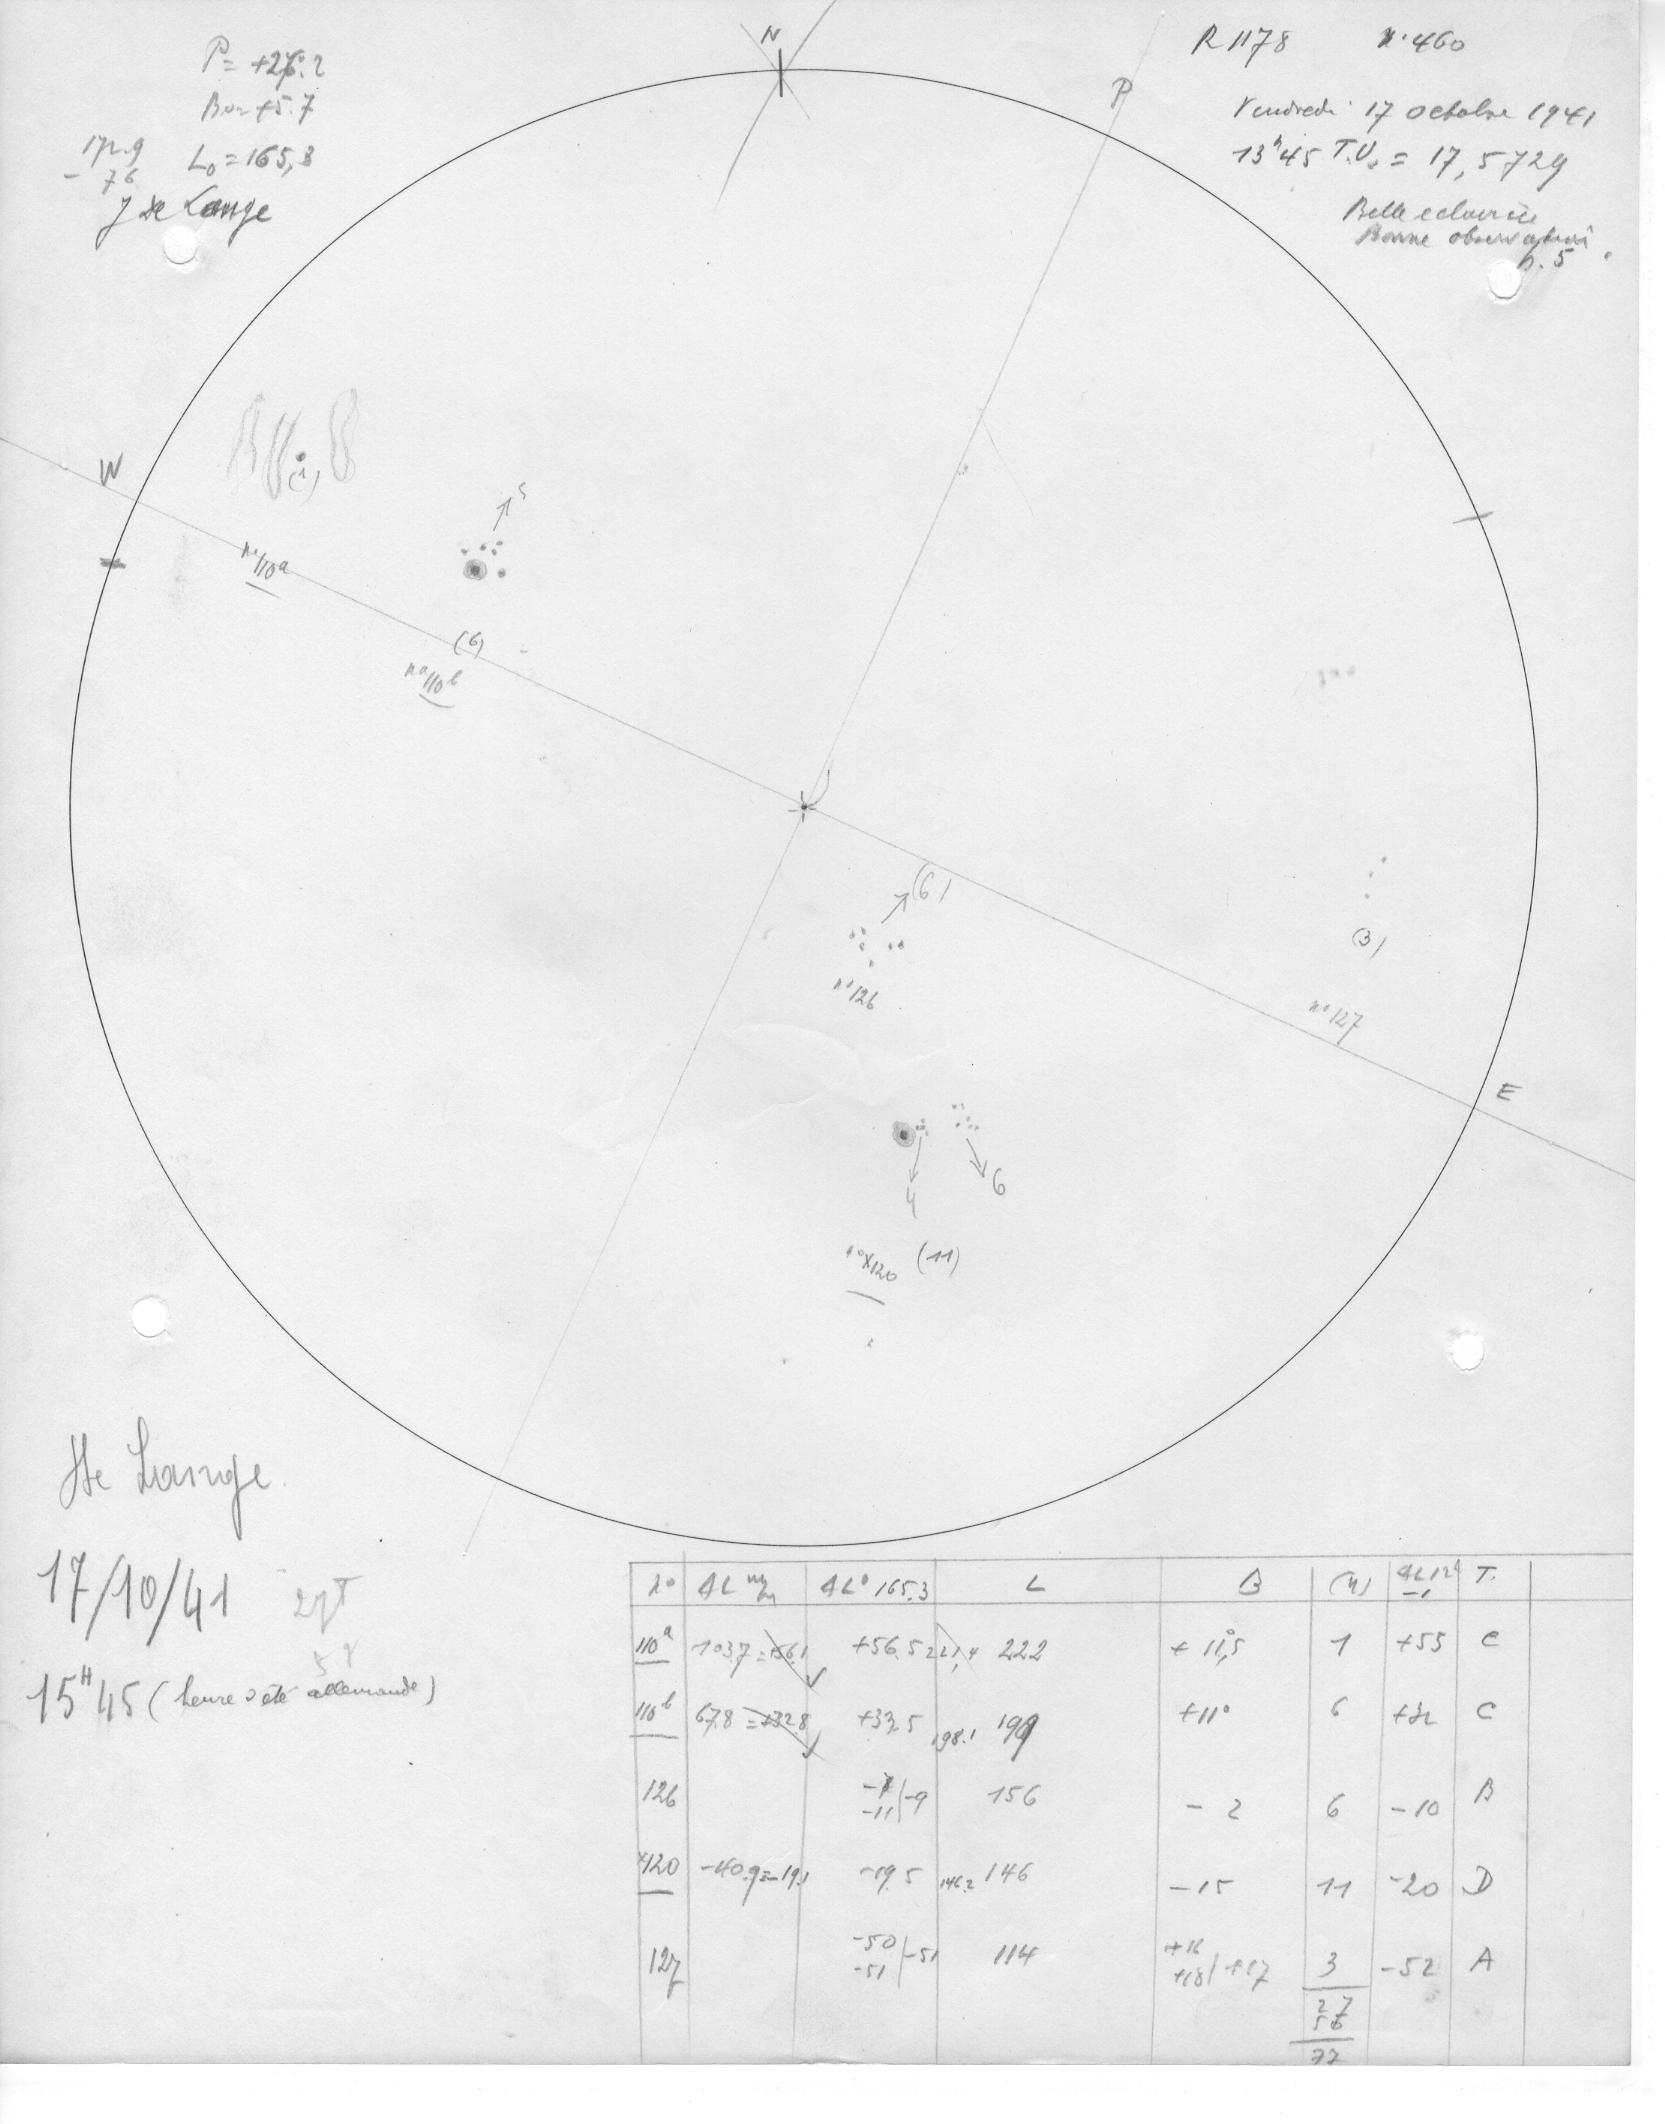 P = +26.2
Bo = +5.7
172.9
- 76
Lo = 165,3
J de Lange
N
P
R 1178 n° 460
Vendredi 17 octobre 1941
13h45 T.U. = 17,5729
Belle eclaircie
Bonne observation
W
(1)
5
n° 110a
(6)
n° 110b
(6)
n° 126
(3)
n° 127
E
4
6
n° 120 (11)
de Lange
17/10/41
15H45 (heure d'été allemande)
n° ΔL ΔL° 165.3 L B T.
110a 103.7 = +56.1 +56.5 221,4 222 + 11,5 1 +55 C
110b 67.8 = +32.8 +33.5 198.1 199 +11° 6 C
126 -11 | -9 156 - 2 6 -10 B
120 -40.9 = -19.1 -19.5 146.2 146 -15 11 -20 D
127 -50 -51 | -51 114 +16 +18 | +17 3 -52 A
27
50
77